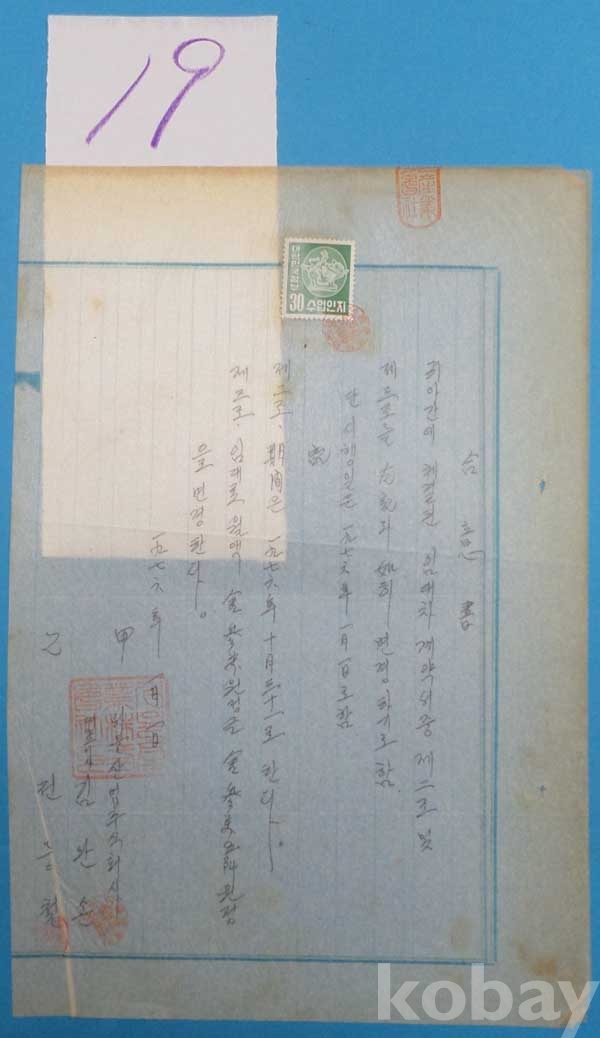 19
대한민국정부
30 수입인지
合意書
피아간에 체결된 임대차 계약서중 제二조 및
제三조를 左記와 如히 변경하기로 함.
단 시행일은 一九七六年 一月 一日로 함
記
제二조、期間은 一九七六年 十月 三十一로 한다。
제三조、임대료 월액 金 원정을 金 원정
으로 변경한다。
一九七六年 一月 一日
甲 산업주식회사
김완손
乙 전
kobay